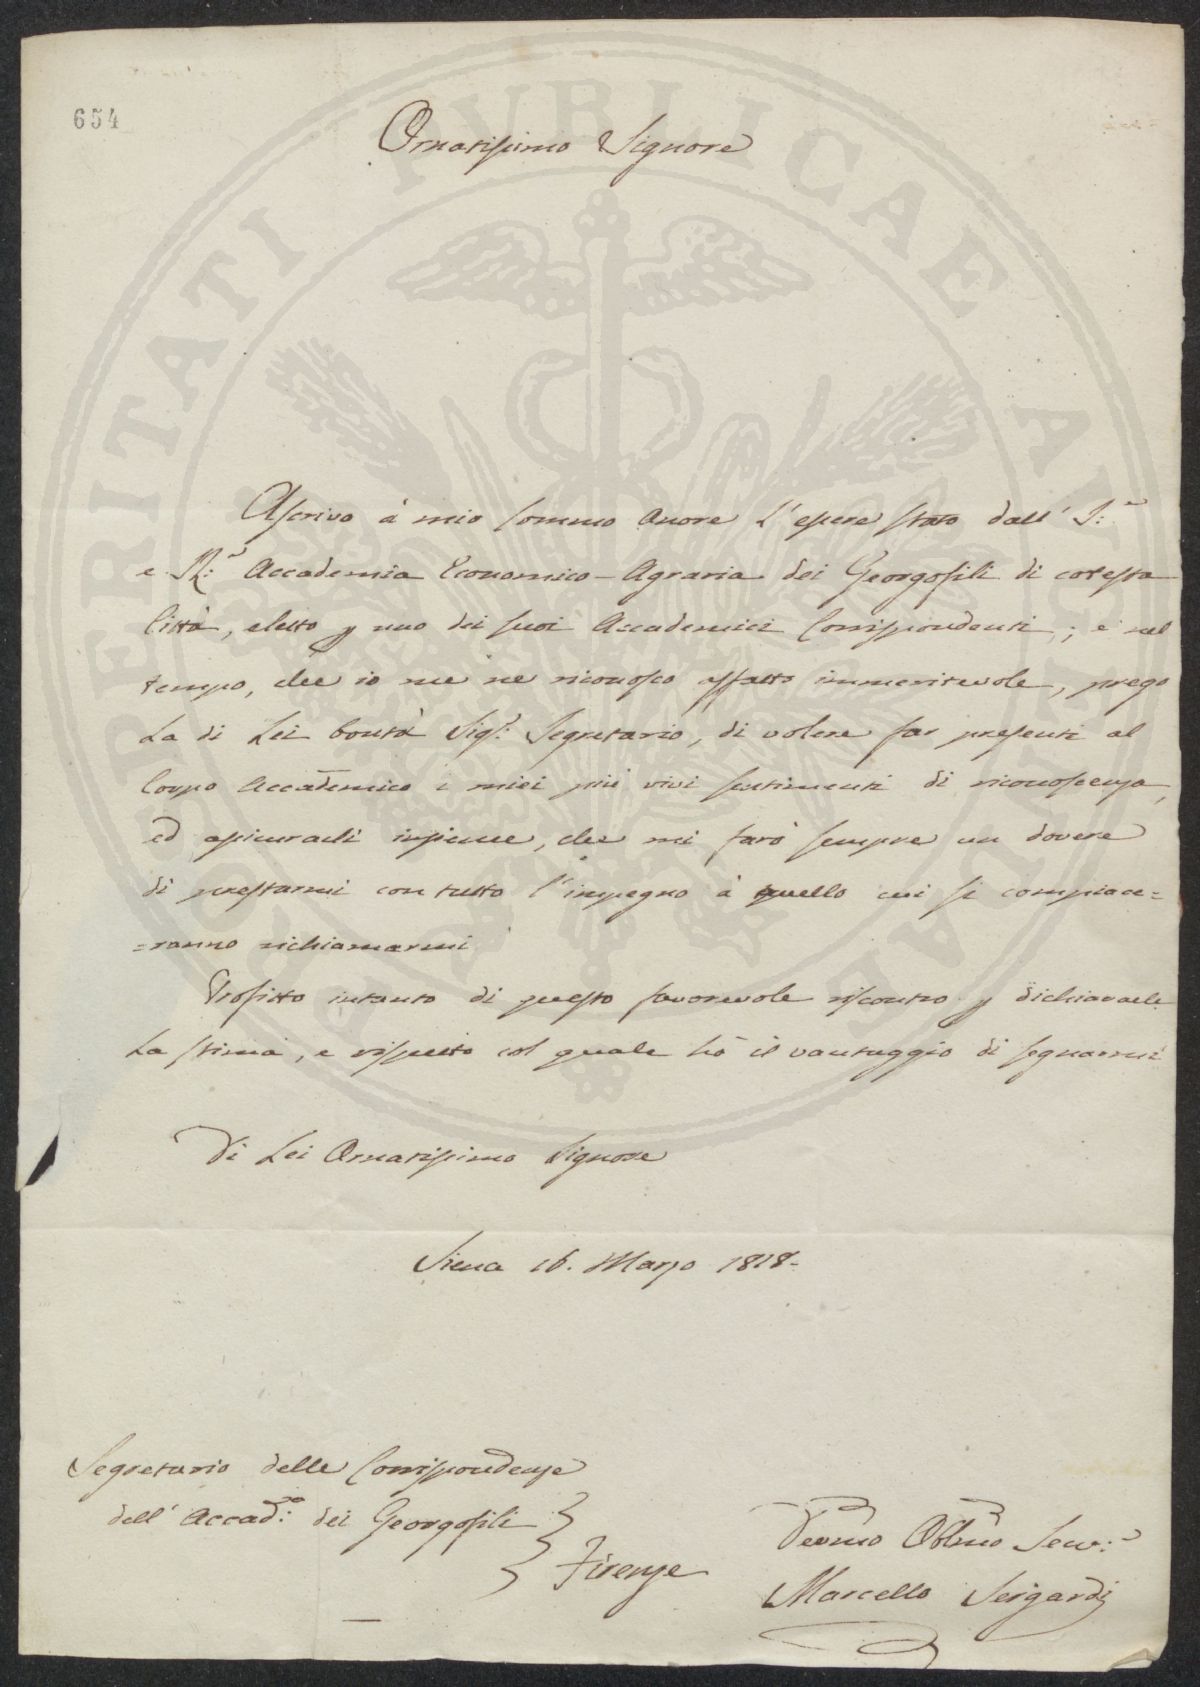 654
Ornatissimo Signore
PROSPERITATI PVBLICAE AVGENDAE
Ascrivo à mio sommo onore l'essere stato dall' I:
e R: Accademia Economico-Agraria dei Georgofili di cotesta
Città, eletto p uno dei suoi Accademici Corrispondenti; e nel
tempo, che io me ne riconosco affatto immeritevole, prego
la di Lei bontà Sig.r Segretario, di volere far presenti al
Corpo Accademico i miei più vivi sentimenti di riconoscenza,
ed assicurarli insieme, che mi farò sempre un dovere
di prestarmi con tutto l'impegno à quello cui si compiace=
=ranno richiamarmi
Profitto intanto di questo favorevole riscontro p dichiararle
la stima, e rispetto col quale hò il vantaggio di segnarmi
Di Lei Ornatissimo Signore
Siena 16. Marzo 1818.
Segretario delle Corrispondenze
dell' Accad: dei Georgofili
Firenze
Devmo Obbmo Serv:
Marcello Sergardi